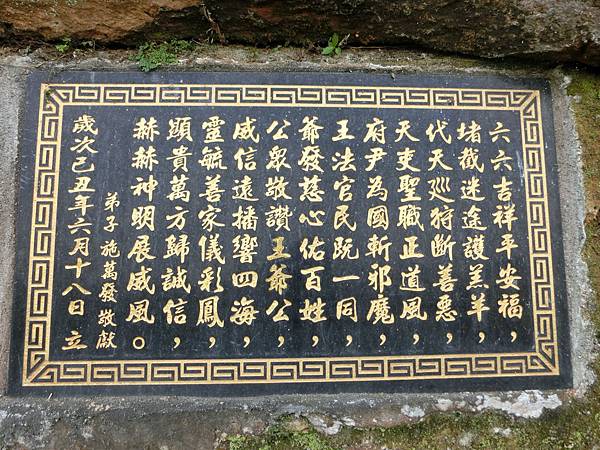 六六吉祥平安福，
堵截迷途護羔羊，
代天巡狩断善惡，
天吏聖職正道風，
府尹為國斬邪魔，
王法官民阮一同，
爺發慈心佑百姓，
公衆敬讚王爺公，
威信遠播響四海，
靈毓善家儀彩鳳，
顯貴萬方歸誠信，
赫赫神明展威風。
弟子施萬發敬獻
歲次己丑年六月十八日立